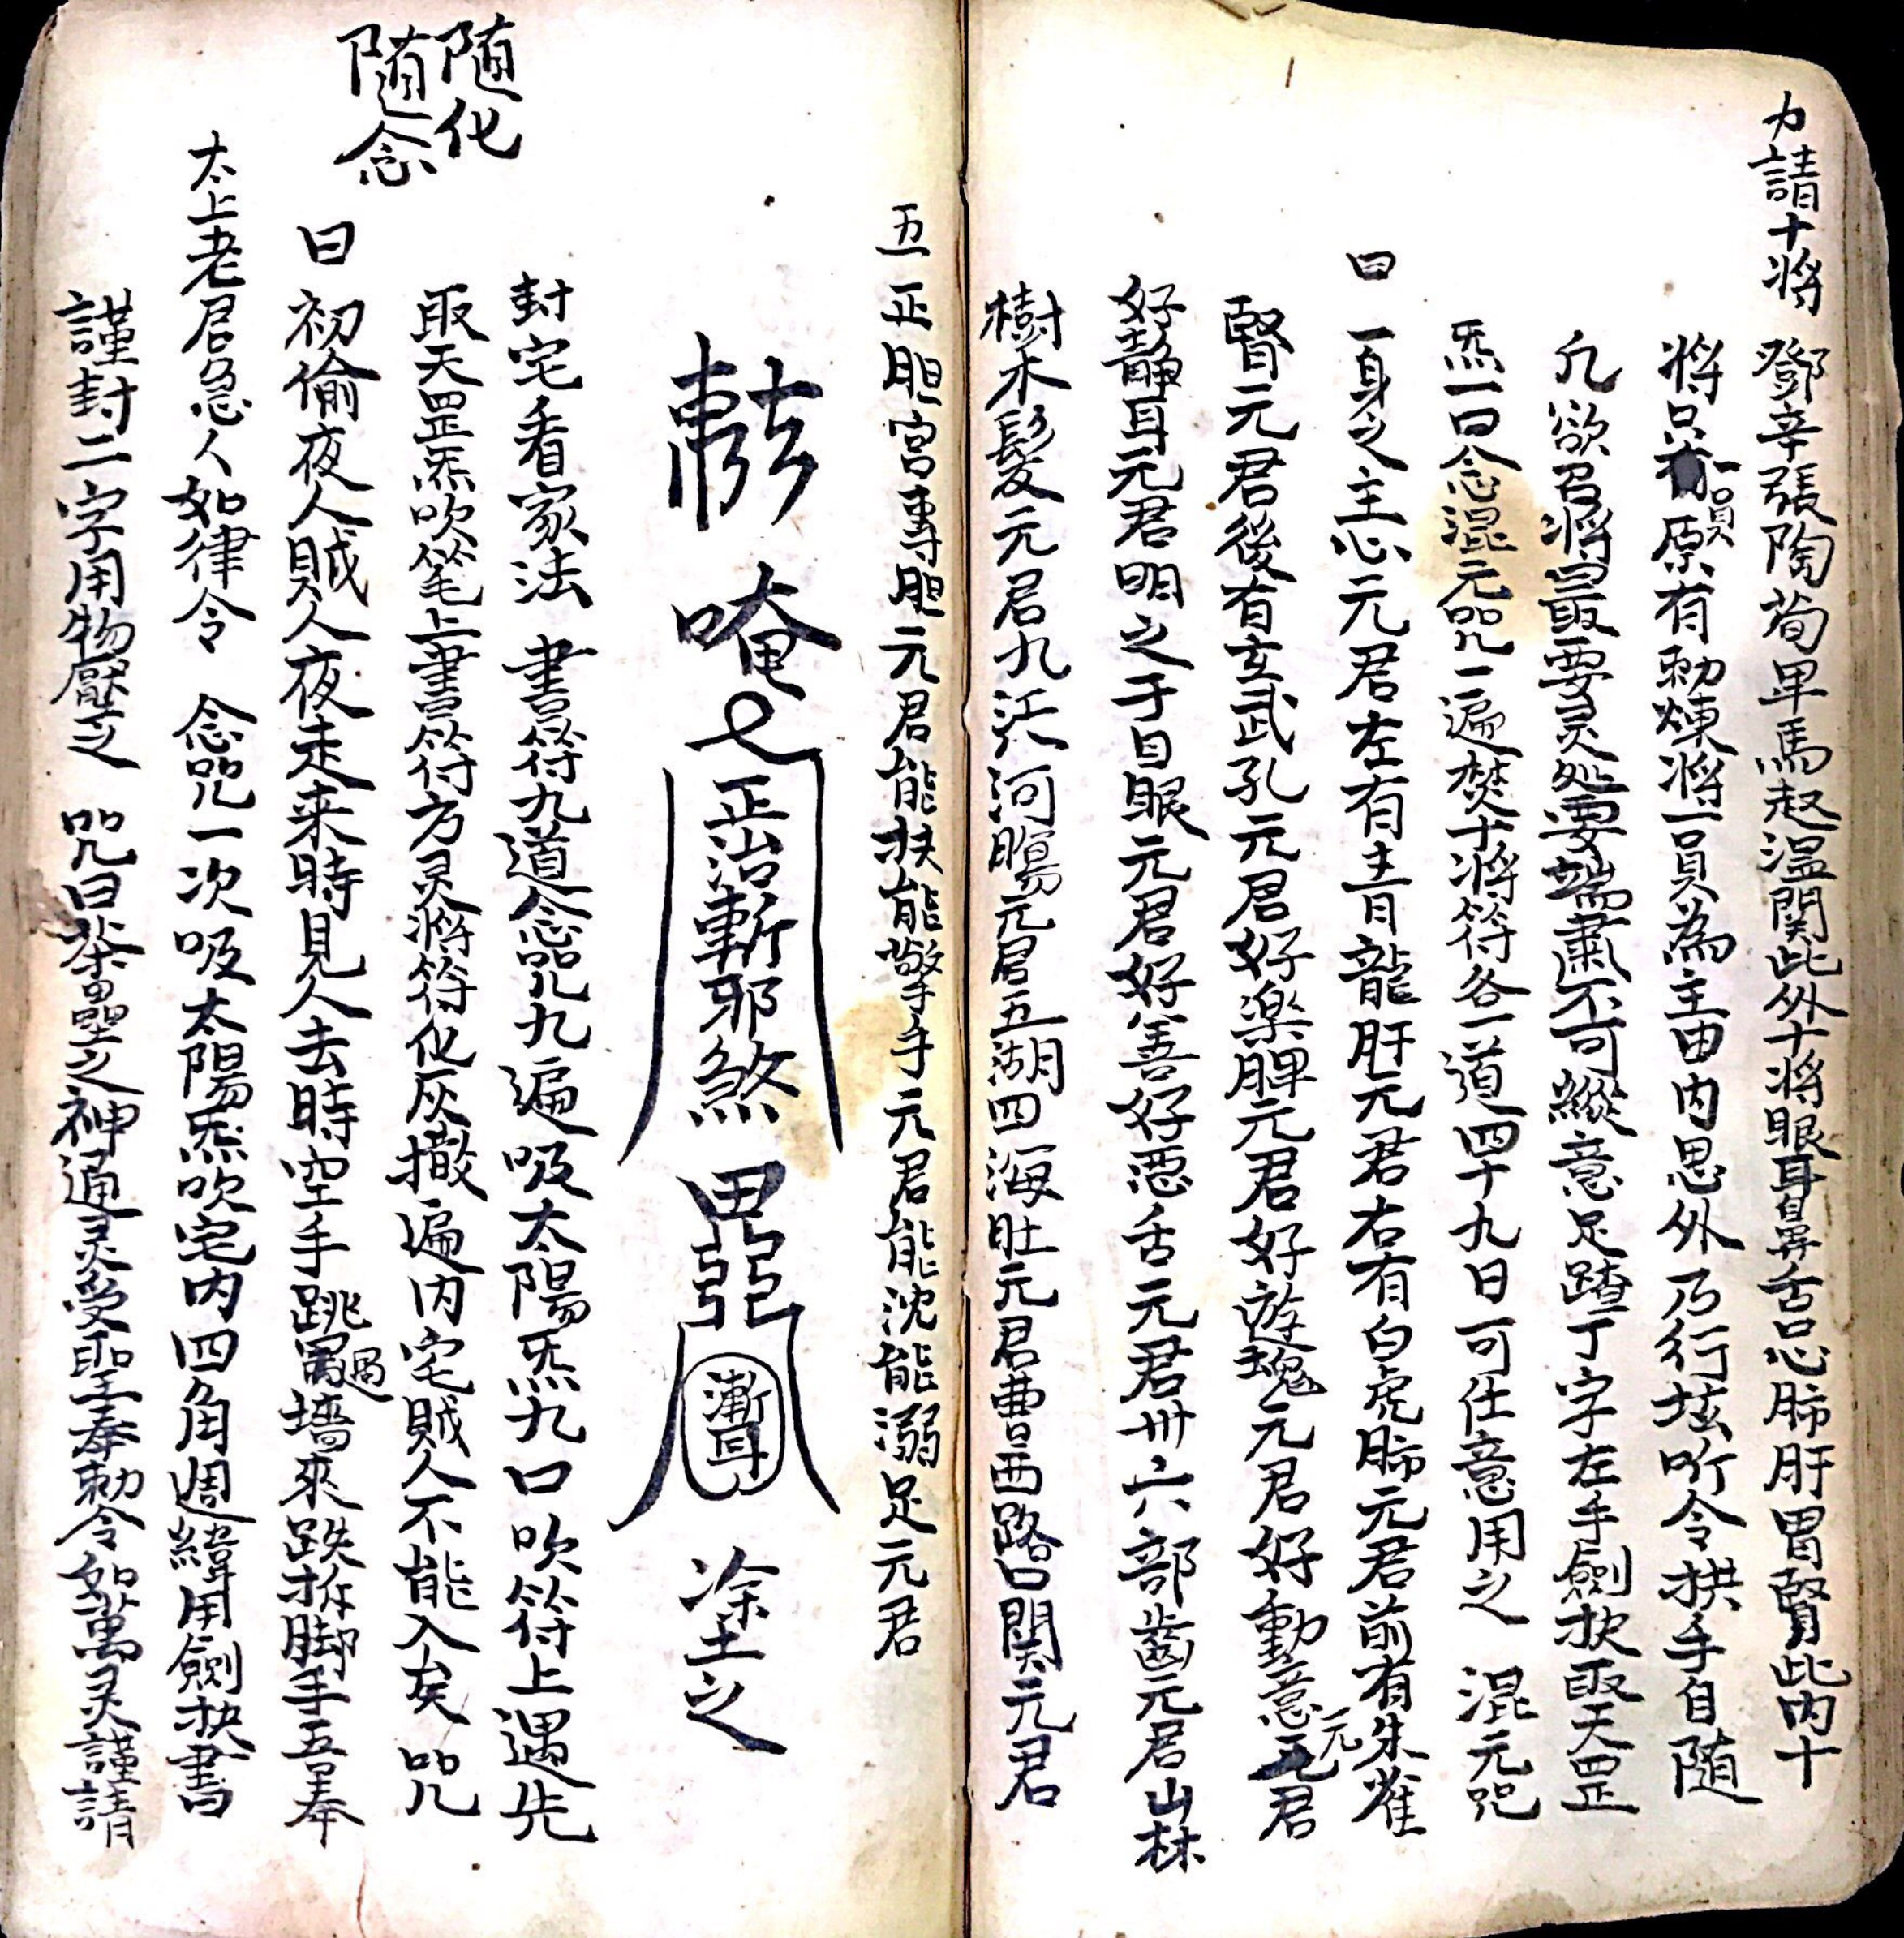 力請十將 鄧辛張陶荀畢馬赵溫関此外十将眼耳鼻舌心肺肝胃腎此内十
將只一員原有勅煉將一員為主由内思外乃行坛听令拱手自随
凡欲召将最要灵処要端肅不可縱意足踏丁字左手劍抉取天罡
炁一曰念混元咒一遍焚十將符各一道四十九日可任意用之 混元咒
曰 一身之主心元君左有青龍肝元君右有白虎肺元君前有朱雀
腎元君後有玄武孔元君好楽脾元君好遊魂元君好動意元君
好静耳元君明之于目眼元君好善好恶舌元君卅六部齒元君山林
樹木髮元君九江八河腸元君五湖四海肚元君曹西路口関元君
五正胆宮專胆元君能扶能擎手元君能沈能溺足元君
唵 正治斬邪煞 塗之
封宅看家法 書符九道念咒九遍吸太陽炁九口吹符上遇先
取天罡炁吹笔上書符方灵將符化灰撒遍内宅賊人不能入矣 咒
曰 初偷夜人賊人夜走来時見人去時空手跳過墻來跌拆脚手吾奉
太上老君急人如律令 念咒一次吸太陽炁吹宅内四角週緯用劍抉書
謹封二字用物壓之 咒曰荼壘之神通灵受聖奉勅令如萬灵謹請
随化
随念